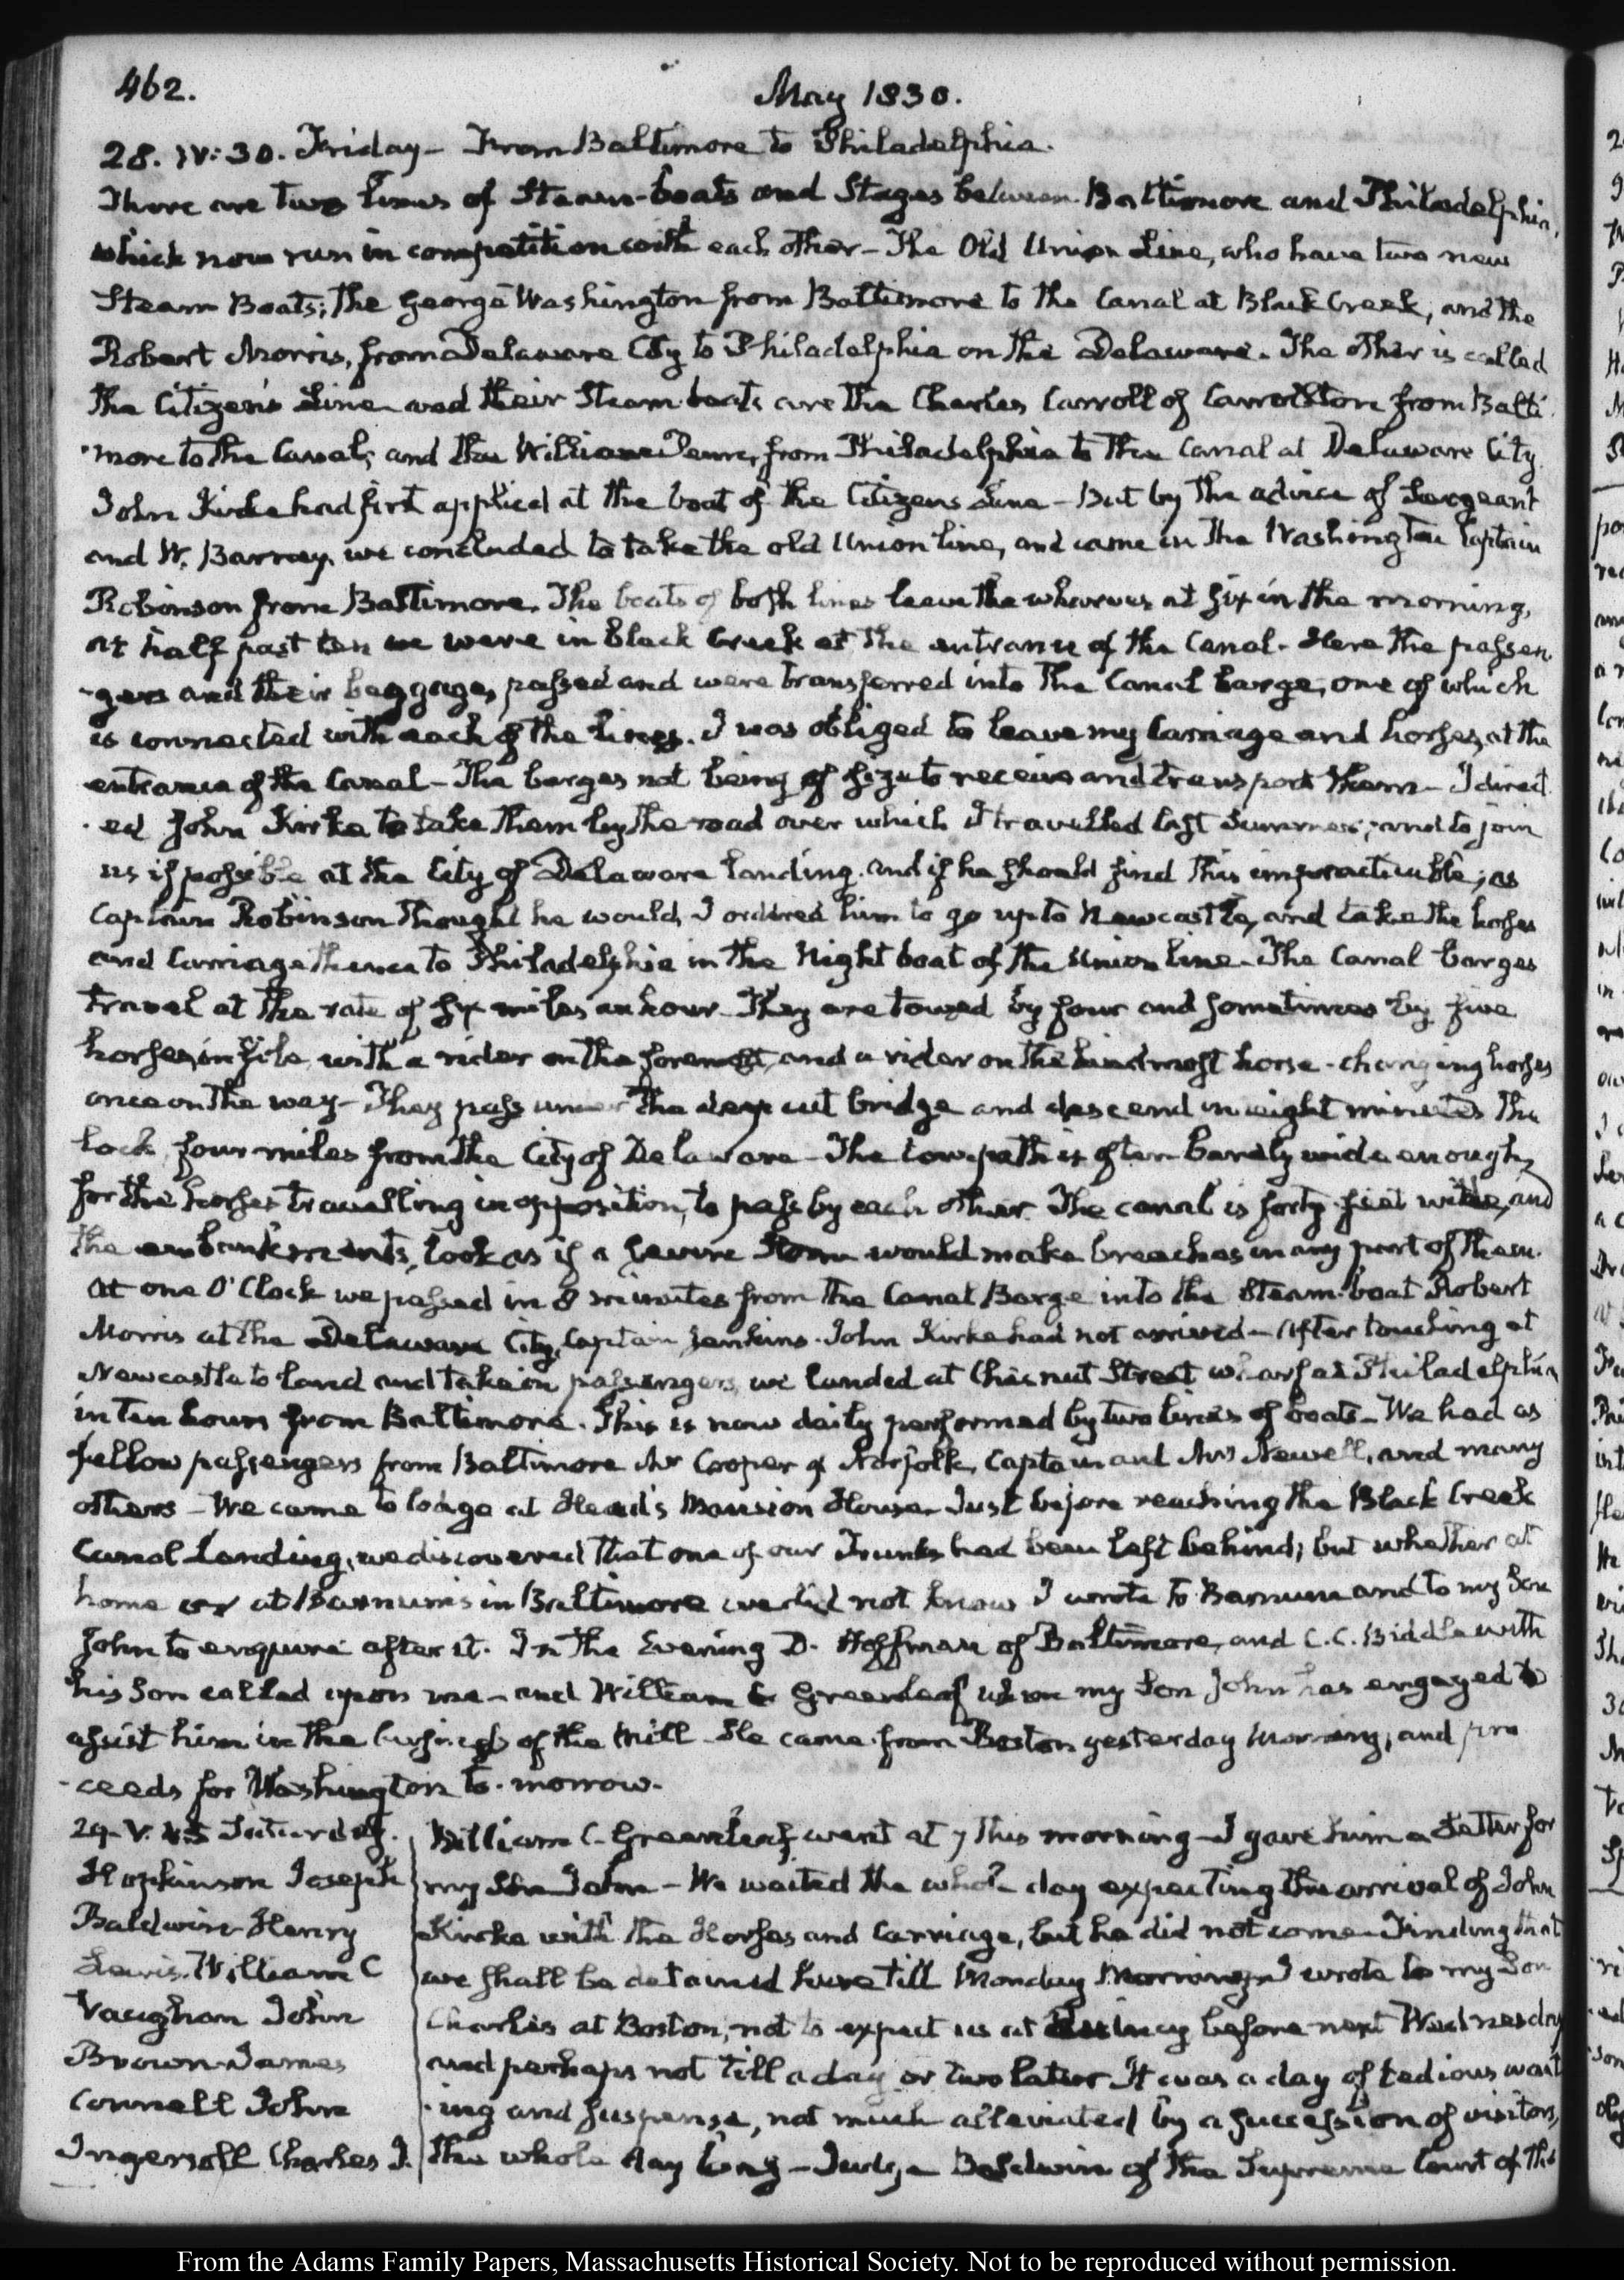 462.
May 1830.
28. IV:30. Friday - From Baltimore to Philadelphia.
There are two lines of Steam-boats and Stages between Baltimore and Philadelphia,
which now run in competition with each other - The Old Union Line, who have two new
Steam Boats; The George Washington from Baltimore to the Canal at Black Creek, and the
Robert Morris, from Delaware City to Philadelphia on the Delaware. The other is called
the Citizen's Line and their Steam-boats are the Charles Carroll of Carrollton from Balti
-more to the Canal, and the William Penn, from Philadelphia to the Canal at Delaware City
John Kirke had first applied at the boat of the Citizens Line - But by the advice of Sergeant
and W. Barney, we concluded to take the old Union line, and came in the Washington Captain
Robinson from Baltimore. The boats of both lines leave the wharves at six in the morning,
at half past ten we were in Black Creek at the entrance of the Canal - Here the passen
-gers and their baggage, passed and were transferred into the Canal barge, one of which
is connected with each of the lines. I was obliged to leave my Carriage and horses, at the
entrance of the Canal - The barges not being of size to receive and transport them - I direct
-ed John Kirke to take them by the road over which I travelled last Summer, and to join
us if possible at the City of Delaware landing. and if he should find this impracticable, as
Captain Robinson thought he would, I ordered him to go up to Newcastle, and take the horses
and Carriage thence to Philadelphia in the Night boat of the Union line - The Canal barges
travel at the rate of six miles an hour - They are towed by four and sometimes by five
horses, in file, with a rider on the foremost, and a rider on the hindmost horse - changing horses
once on the way - They pass under the deep cut bridge and descend in eight minutes the
lock four miles from the City of Delaware - The towpath is often barely wide enough,
for the horses travelling in opposition, to pass by each other. The canal is forty feet wide, and
the embankments, look as if a severe storm would make breaches in any part of them.
At one O'Clock we passed in 8 minutes from the Canal Barge into the Steam-boat Robert
Morris at the Delaware City, Captain Jenkins. John Kirke had not arrived - After touching at
Newcastle to land and take in passengers, we landed at Chesnut Street wharf at Philadelphia
in ten hours from Baltimore. This is now daily performed by two lines of boats - We had as
fellow passengers from Baltimore Mr Cooper of Norfolk, Captain and Mrs Newell, and many
others - We came to lodge at Head's Mansion House. Just before reaching the Black Creek
Canal Landing, we discovered that one of our Trunks had been left behind; but whether at
home or at Barnum's in Baltimore we did not know I wrote to Barnum and to my Son
John to enquire after it. In the Evening D. Hoffman of Baltimore, and C. C. Biddle with
his Son called upon me - and William C Greenleaf whom my Son John has engaged to
assist him in the business of the Mill - He came from Boston yesterday morning, and pro
-ceeds for Washington to-morrow.
29. V.45 Saturday.
Hopkinson Joseph
Baldwin Henry
Lewis. William C
Vaughan John
Brown James
Connell John
Ingersoll Charles J.
William C. Greenleaf, went at 7 this morning - I gave him a Letter for
my Son John - We waited the whole day expecting the arrival of John
Kirke with the Horses and Carriage, but he did not come - Finding that
we shall be detained here till Monday Morning I wrote to my Son
Charles at Boston, not to expect us at Quincy before next Wednesday
and perhaps not till a day or two later It was a day of tedious wait
-ing and suspense, not much alleviated by a succession of visitors,
the whole day long - Judge Baldwin of the Supreme Court of the
From the Adams Family Papers, Massachusetts Historical Society. Not to be reproduced without permission.